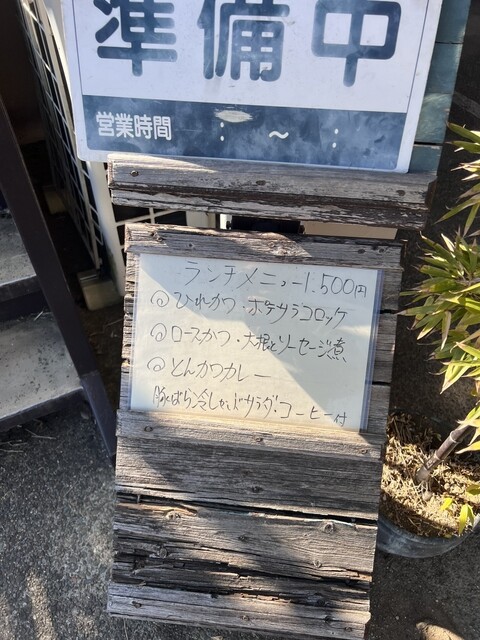 準備中
営業時間 : ~ :
ランチメニュー1.500円
◎ひれかつ・ポテサラコロッケ
◎ロースかつ・大根とソーセージ煮
◎とんかつカレー
豚ばら冷しゃぶサラダ・コーヒー付